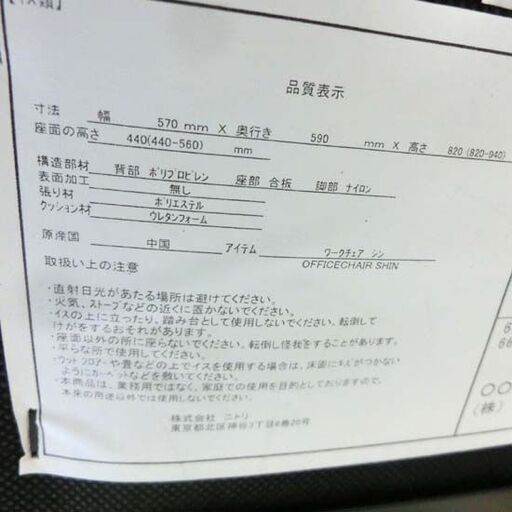 【イス類】
品質表示
寸法 幅 570 mm X 奥行き 590 mm X 高さ 820 (820-940)
座面の高さ 440(440-560) mm
構造部材 背部 ポリプロピレン 座部 合板 脚部 ナイロン
表面加工 無し
張り材 ポリエステル
クッション材 ウレタンフォーム
原産国 中国 アイテム ワークチェア シン
取扱い上の注意 OFFICECHAIR SHIN
・直射日光があたる場所は避けてください。
・火気、ストーブなどの近くに置かないでください。
・イスの上に立ったり、踏み台として使用しないでください。転倒して
けがをするおそれがあります。
・座面以外の所に座らないでください。転倒し怪我をすることがあります。
・平らな所で使用してください。
・ウッドフロアーや畳などの上でイスを使用する場合は、床面にキズがつかない
ようにカーペットなどを敷いてください。
・本商品は、業務用ではなく、家庭での使用を目的としておりますので、
本来の用途以外では使用しないでください。
株式会社 ニトリ
東京都北区神谷3丁目6番20号
〇〇
(株)